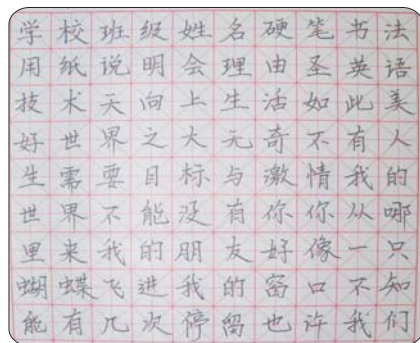 学校班级姓名硬笔书法
用纸说明会理由圣英语
技术天向上生活如此美
好世界之大无奇不有人
生需要目标与激情我的
世界不能没有你你从哪
里来我的朋友好像一只
蝴蝶飞进我的窗口不知
能有几次停留也许我们